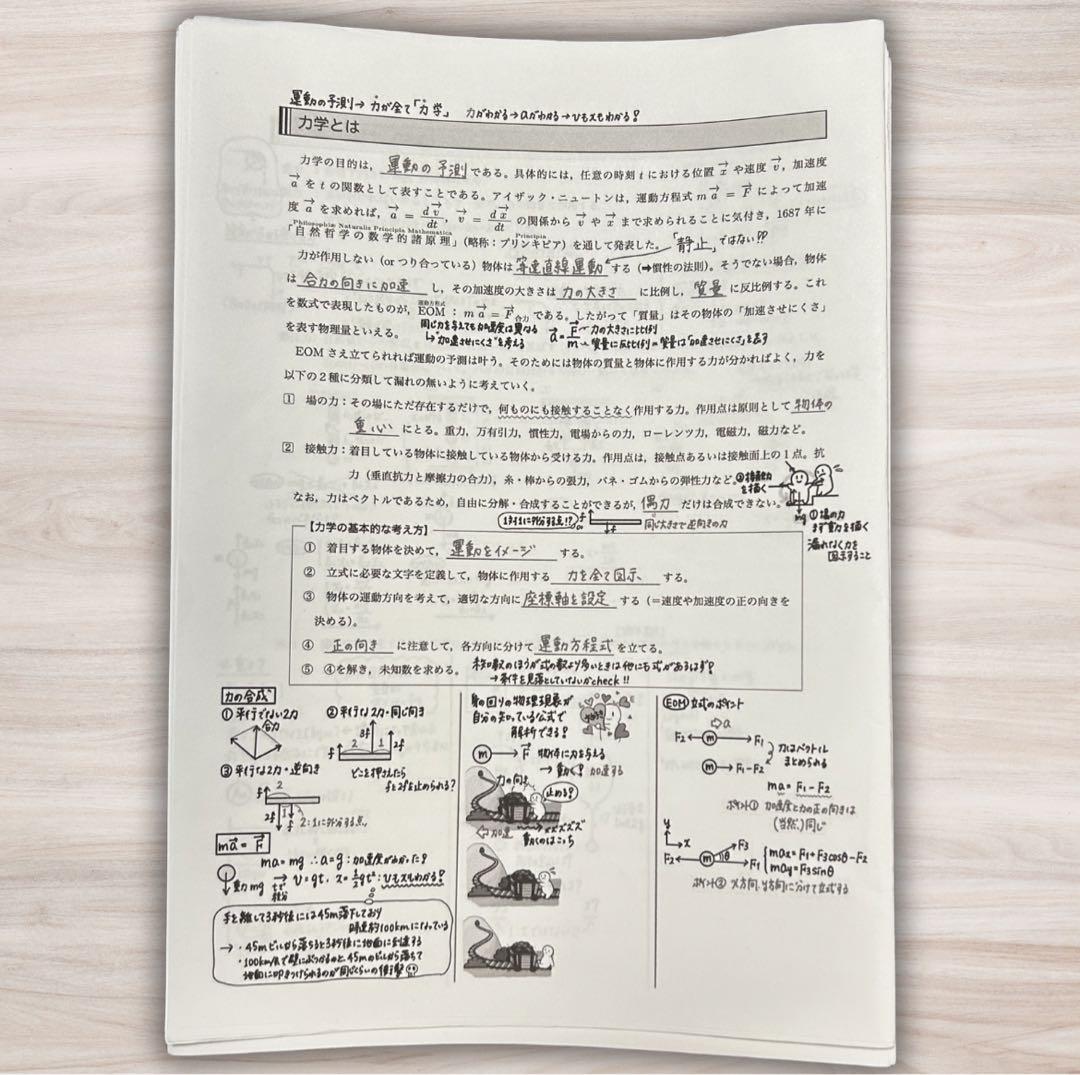 運動の予測→力が全て「力学」 力がわかる→aがわかる→vもxもわかる?
力学とは
力学の目的は，運動の予測である。具体的には，任意の時刻 t における位置 x→ や速度 v→，加速度
a→ を t の関数として表すことである。アイザック・ニュートンは，運動方程式 m a→ = F→ によって加速
度 a→ を求めれば，a→ = dv→/dt，v→ = dx→/dt の関係から v→ や x→ まで求められることに気付き，1687 年に
Philosophiæ Naturalis Principia Mathematica Principia
「自然哲学の数学的諸原理」（略称：プリンキピア）を通して発表した。「静止」ではない!?
力が作用しない（or つり合っている）物体は等速直線運動する（➡慣性の法則）。そうでない場合，物体
は合力の向きに加速し，その加速度の大きさは力の大きさに比例し，質量に反比例する。これ
運動方程式
を数式で表現したものが，EOM：m a→ = F→合力 である。したがって「質量」はその物体の「加速させにくさ」
を表す物理量といえる。
同じ力を与えても加速度は異なる
↳"加速させにくさ"を考える
a→ = F→/m
力の大きさに比例
質量に反比例=質量は"加速させにくさ"を表す
EOM さえ立てられれば運動の予測は叶う。そのためには物体の質量と物体に作用する力が分かればよく，力を
以下の２種に分類して漏れの無いように考えていく。
1 場の力：その場にただ存在するだけで，何ものにも接触することなく作用する力。作用点は原則として物体の
重心にとる。重力，万有引力，慣性力，電場からの力，ローレンツ力，電磁力，磁力など。
2 接触力：着目している物体に接触している物体から受ける力。作用点は，接触点あるいは接触面上の１点。抗
力（垂直抗力と摩擦力の合力），糸・棒からの張力，バネ・ゴムからの弾性力など。
②接触力
を描く
なお，力はベクトルであるため，自由に分解・合成することができるが，偶力だけは合成できない。
同じ大きさで逆向きの力
mg
①場の力
まず重力を描く
漏れなく力を
図示すること
【力学の基本的な考え方】
① 着目する物体を決めて，運動をイメージする。
② 立式に必要な文字を定義して，物体に作用する力を全て図示する。
③ 物体の運動方向を考えて，適切な方向に座標軸を設定する（＝速度や加速度の正の向きを
決める）。
④ 正の向きに注意して，各方向に分けて運動方程式を立てる。
⑤ ④を解き，未知数を求める。
未知数のほうが式の数より多いときは他にも式があるはず?
→条件を見落としていないかcheck!!
力の合成
①平行でない2力
合力
②平行な2力・同じ向き
3f
f 2 1 2f
③平行な2力・逆向き
どこを押さえたら
fと2fを止められる?
2
f
2f 1 f 2:1に外分する点
ma→ = F→
ma=mg ∴a=g：加速度がわかった?
重力mg → v=gt, x=½gt²：vもxもわかる?
tで
積分
手を離して3秒後には45m落下しており
時速約100kmになっている
→・45mビルから落ちると3秒後に地面に到達する
・100km/hで壁にぶつかるのと、45mのビルから落ちて
地面に叩きつけられるのが同じくらいの衝撃
身の回りの物理現象が
自分の知っている公式で
解析できる?
m → F→ 物体に力を与える
→動く? 加速する
力の向き
止める?
加速
ズズズズ
動くのはこっち
EOM 立式のポイント
a
F2 ← m → F1
力はベクトル
まとめられる
m → F1−F2
ma = F1−F2
ポイント① 加速度と力の正の向きは
(当然、)同じ
y
x
F3
F2 m θ F1
max=F1+F3cosθ−F2
may=F3sinθ
ポイント② x方向、y方向に分けて立式する